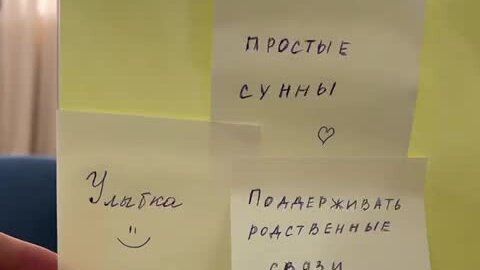 ПРОСТЫЕ
СУННЫ
Улыбка
ПОДДЕРЖИВАТЬ
РОДСТВЕННЫЕ
СВЯЗИ